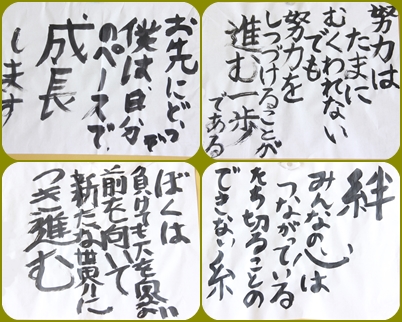 お先にどうぞ
僕は、自分
のペースで
成長
します
努力は
たまに
むくわれない
でも
努力を
しつづけることが
進む一歩
である
ぼくは
負けても下を見ない
前を向いて
新たな世界に
つき進む
絆
みんなの心は
つながっている
たち切ることの
できない糸